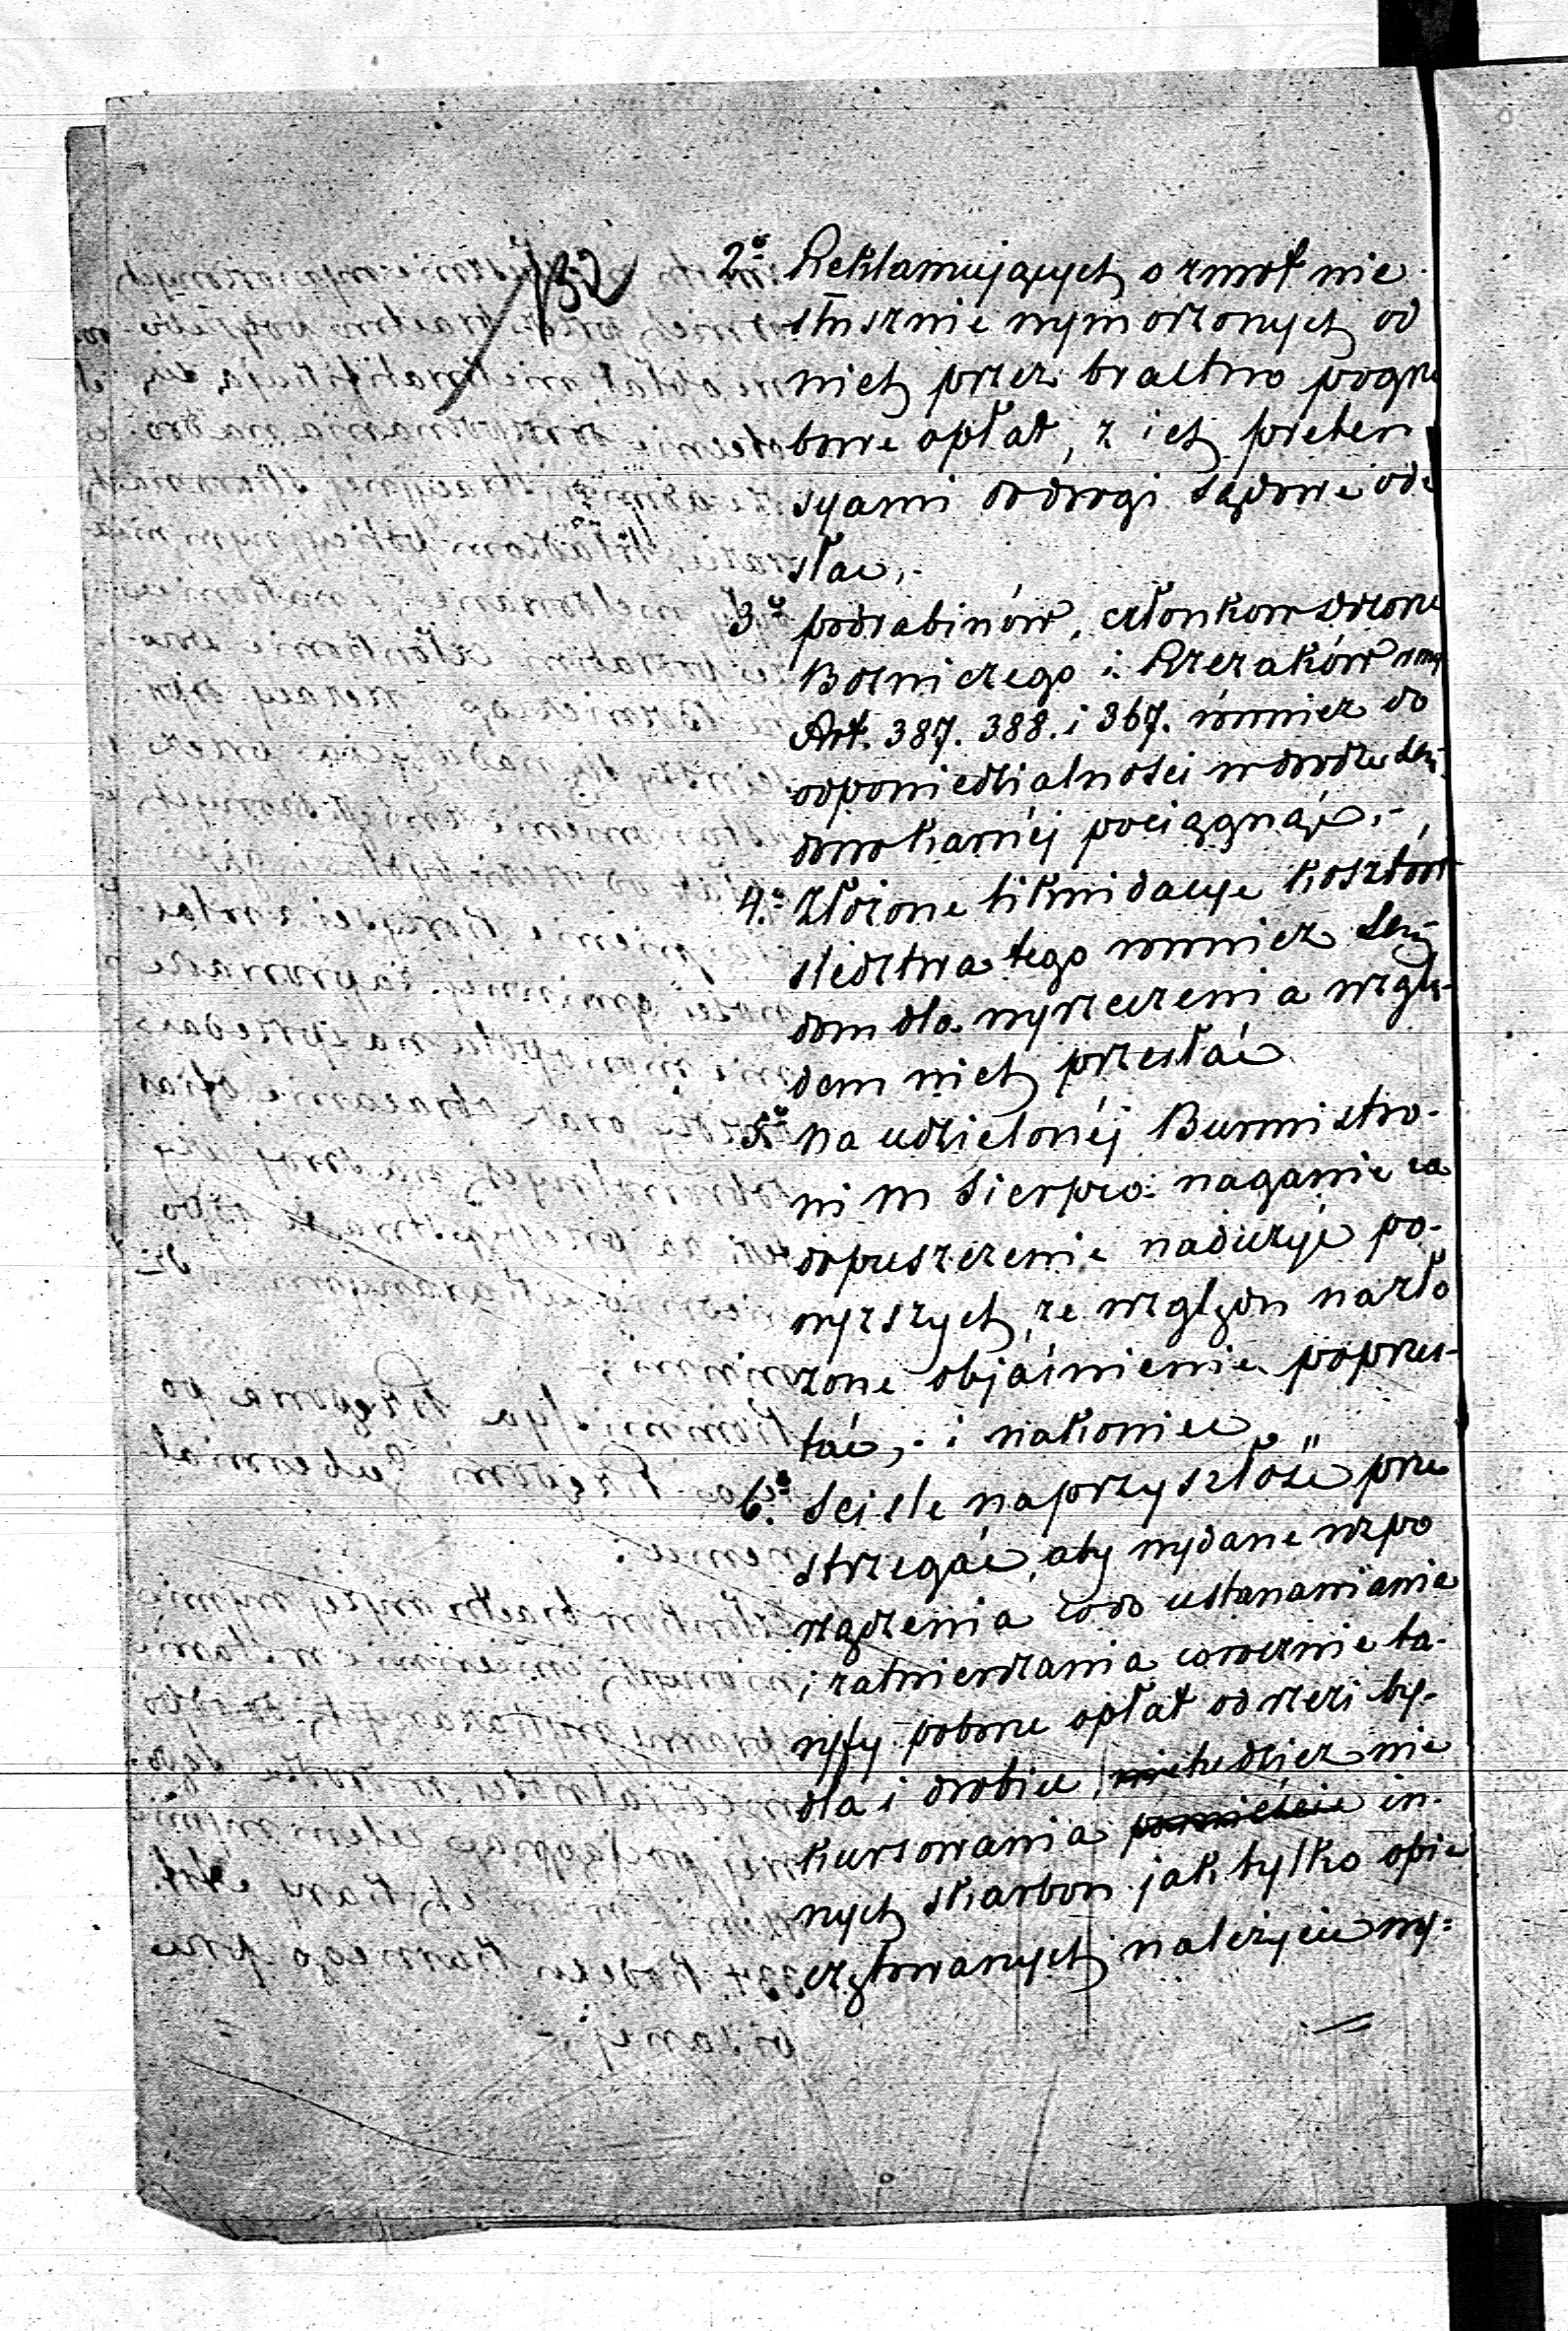 132
2° Reklamujących o zwrot nie
słusznie wymożonych od
nich przez bractwo pogrze
bowe opłat, z ich preten
syami do drogi sądowe ode
słać,-
3° podrabinów, członków dozoru
Bożniczego i Rzezaków
Art. 387. 388. i 367. również do
odpowiedzialności w drodze Są
dowo karnéj pociągnąć.-
4° złożone likwidacye kosztów
śledztwa tego również Są
dom dla wyrzeczenia wzglę-
dem nich przesłać
5° na udzielonéj Burmistro-
wi m Sierpca naganie za
dopuszczenie nadużyć po-
wyższych, ze względu na zło
żone objaśnienie poprzes-
tać,- i nakoniec
6° Sciśle na przyszłość prze
strzegać, aby wydane rozpo
rządzenia co do ustanawiania
i zatwierdzania corocznie ta-
ryfy poboru opłat od rzezi by-
dła i drobiu, tudzież nie
kursowania in-
nych skarbon jak tylko opie
czętowanych należycie wy=